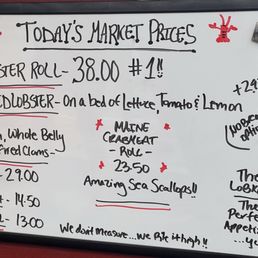 TODAY'S MARKET PRICES
STER ROLL - 38.00 #1!!
ED LOBSTER - On a bed of Lettuce, Tomato & Lemon
+29
, Whole Belly
Fried Clams -
29.00
14.50
13.00
MAINE
CRABMEAT
- ROLL -
23.50
Amazing Sea Scallops!!
No
The
LOBS
The
Perfe
Appeti
We don't measure... we Pile it high!!